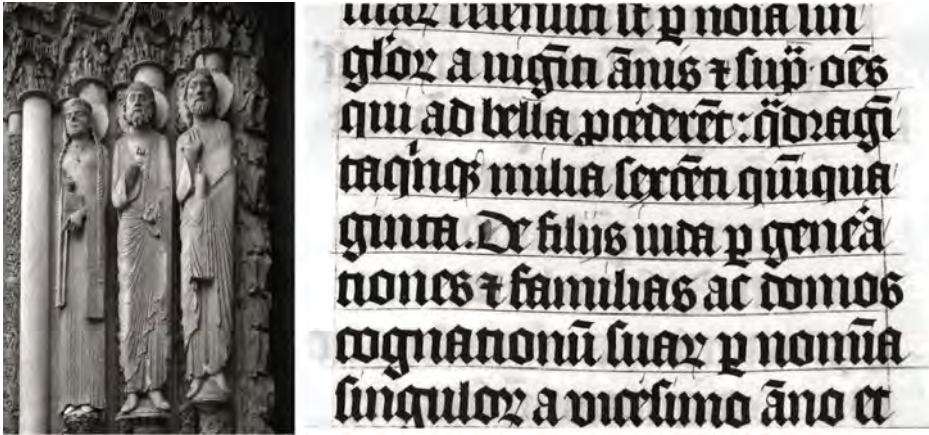 gloꝝ a uigīti ānis ⁊ sup̈ oēs
qui ad bella ꝓcederēt : q̈dragī
taqͥnqꝫ milia sexcēti quīqua
ginta. De filijs iuda ꝑ gene᷑a
tiones ⁊ familias ac domos
cognationū suaꝝ ꝑ nomīa
singuloꝝ a vicesimo āno et